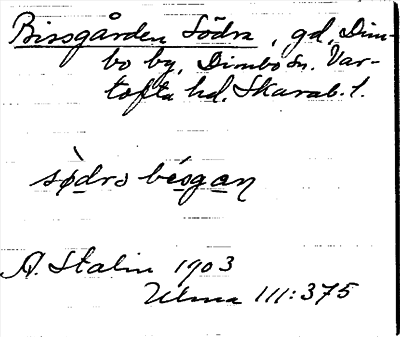 Bissgården Södra, gd, Dim-
bo by, Dimbo sn. Var-
tofta hd. Skarab. l.
sø̀drə bísgan
A. Stalin 1903
Ulma 111:375